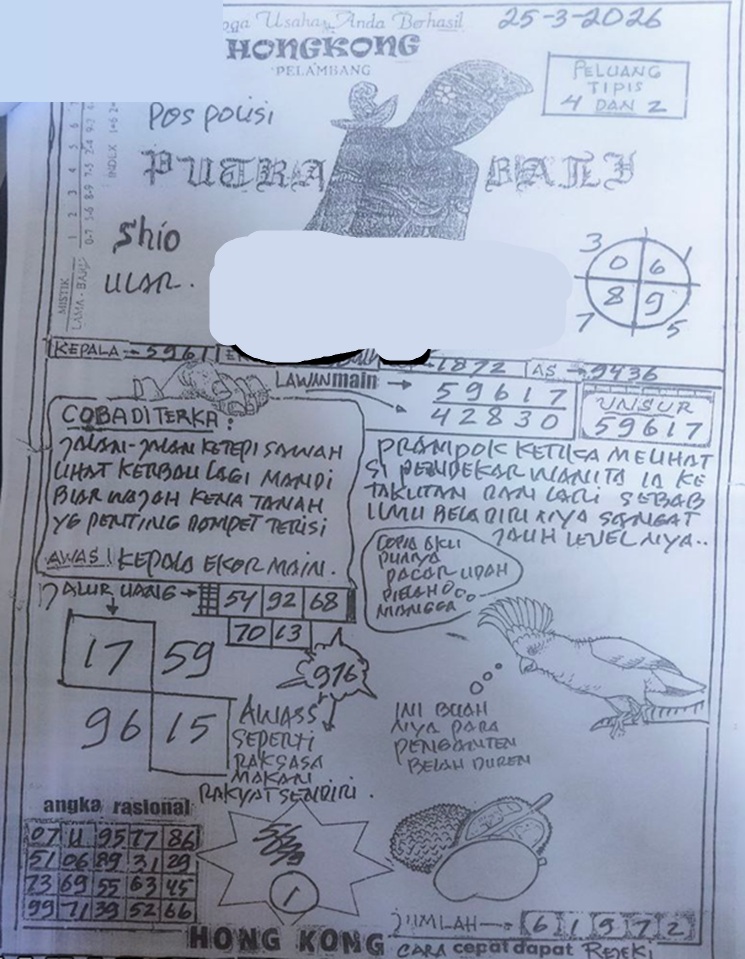 oga Usaha Anda Berhasil
25-3-2026
HONGKONG
PELAMBANG
PELUANG
TIPIS
4 DAN 2
POS POLISI
PUTRA BALI
Shio
ULAR.
MISTIK
LAMA - BARU
INDEX
3 1
0 6
8 9
7 5
KEPALA → 59617
1872 AS → 9436
LAWAN main → 59617
42830
UNSUR
59617
COBA DITERKA:
JALAN-JALAN KETEPI SAWAH
LIHAT KERBAU LAGI MANDI
BIAR WAJAH KENA TANAH
YG PENTING DOMPET TERISI
AWAS! KEPALA EKOR MAIN.
PRAMPOK KETIKA MELIHAT
SI PENDEKAR WANITA IA KE
TAKUTAN DAN LARI SEBAB
ILMU BELADIRI NYA SANGAT
JAUH LEVELNYA..
COBA AKU
PUNYA
PACAR UDAH
DIELAH
MANGGA
JALUR UANG → 54 92 68
70 13
17 59
96 15
976
AWASS
SEPERTI
RAKSASA
MAKAN
RAKYAT SENDIRI.
INI BUAH
NYA PARA
PENGANTEN
BELAH DUREN
angka rasional
07 11 95 77 86
51 06 89 31 29
73 69 55 63 45
99 71 39 52 66
1
JUMLAH → 6 1 9 7 2
HONG KONG
CARA cepat dapat REJEKI